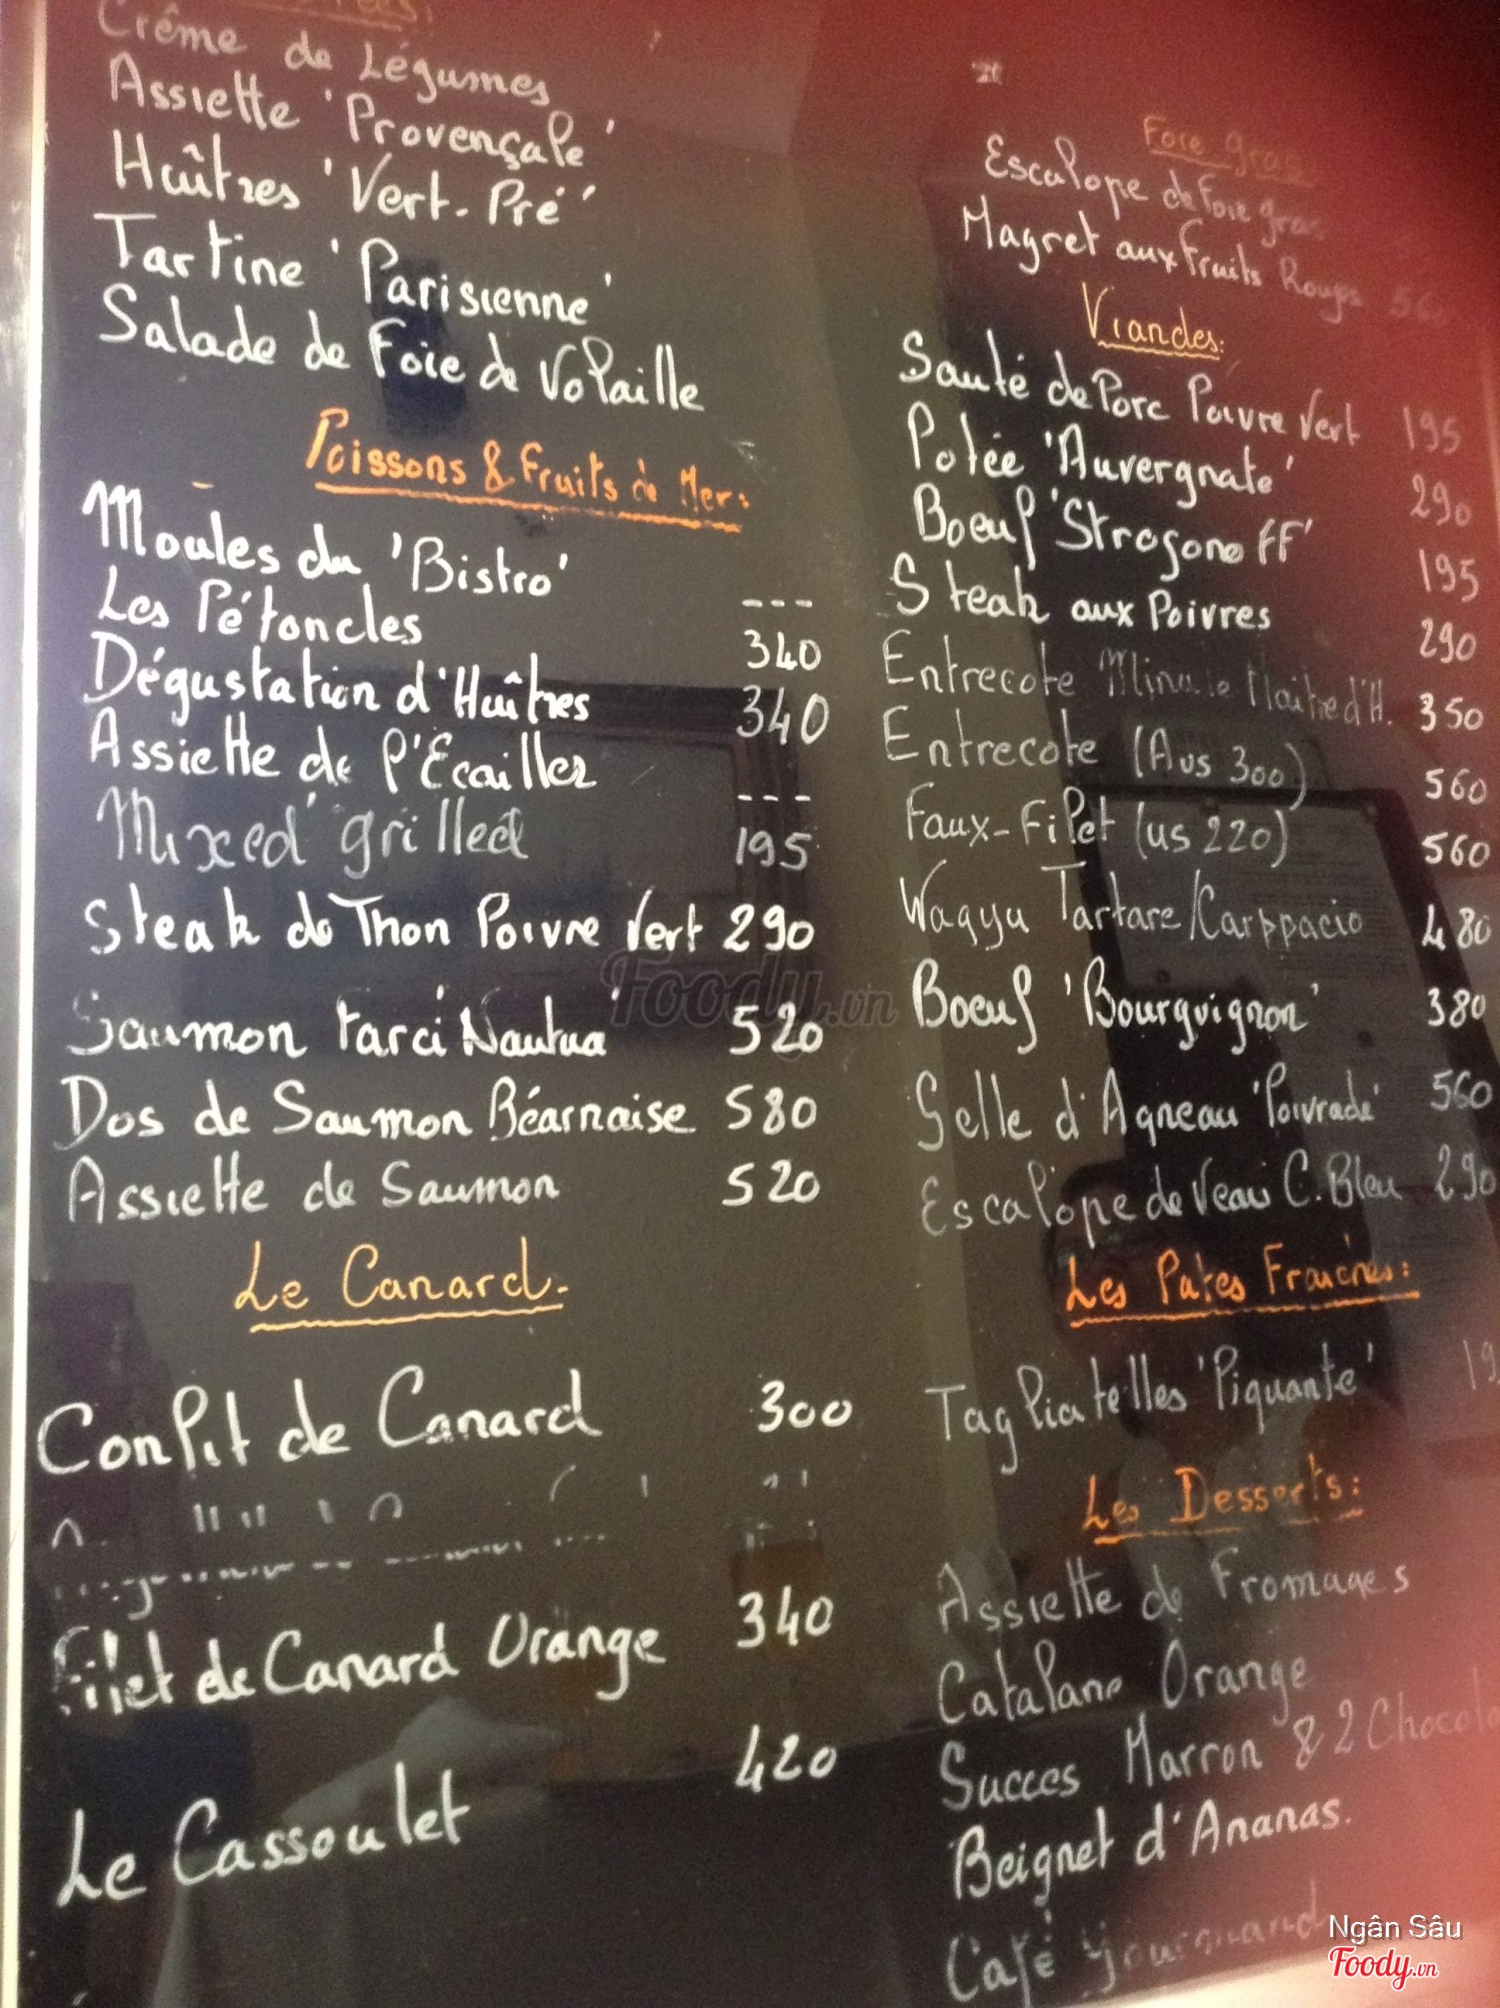 Crême de Légumes
Assiette 'Provençale'
Huîtres 'Vert-Pré'
Tartine 'Parisienne'
Salade de Foie de Volaille
Poissons & Fruits de Mer:
Moules du 'Bistro' ---
Les Pétoncles 340
Dégustation d'Huîtres 340
Assiette de l'Ecailler ---
Mixed grilled 195
Steak de Thon Poivre Vert 290
Saumon Farci Nantua 520
Dos de Saumon Béarnaise 580
Assiette de Saumon 520
Le Canard.
Confit de Canard 300
Filet de Canard Orange 340
Le Cassoulet 420
Foie gras
Escalope de Foie gras
Magret aux Fruits Rouges
Viandes:
Sauté de Porc Poivre Vert 195
Potée 'Auvergnate' 290
Boeuf 'Strogonoff' 195
Steak aux Poivres 290
Entrecote Minute Maitre d'H. 350
Entrecote (Aus 300) 560
Faux-Filet (us 220) 560
Wagyu Tartare/Carppacio 480
Boeuf 'Bourguignon' 380
Selle d'Agneau 'Poivrade' 560
Escalope de Veau C.Bleu 290
Les Pates Fraiches:
Tagliatelles 'Piquante'
Les Desserts:
Assiette de Fromages
Catalane Orange
Succes Marron & 2 Chocola
Beignet d'Ananas.
Café Gourmand
Foody.vn
Ngân Sâu
Foody.vn